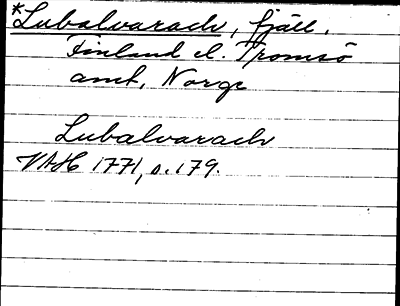 *Lubalvarach, fjäll,
Finland el. Tromsö
amt, Norge
Lubalvarach
VAH 1771, s. 179.